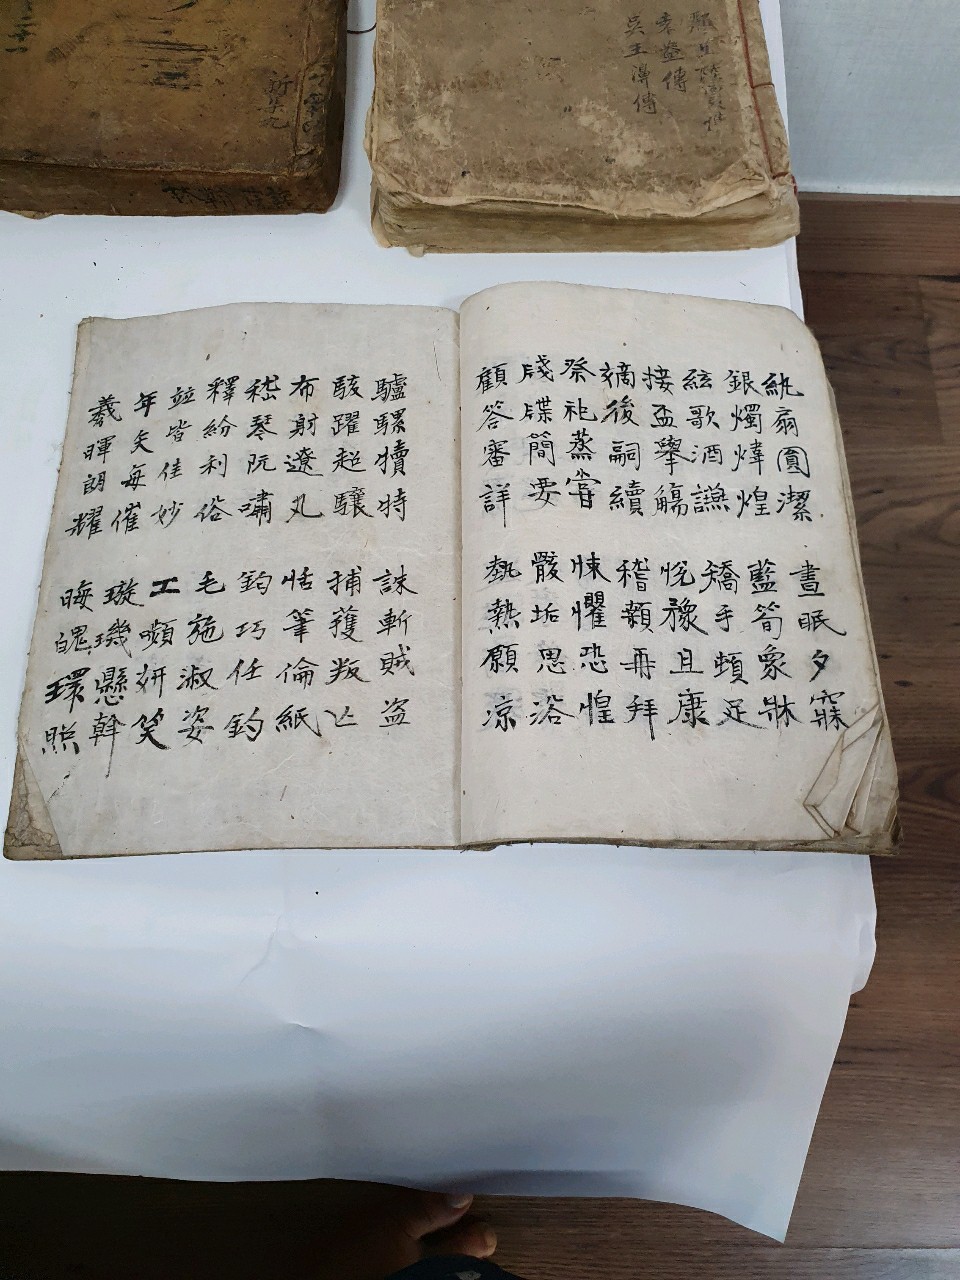 袁盎傳
吳王濞傳
紈扇圓潔 晝眠夕寐
銀燭煒煌 藍筍象牀
絃歌酒讌 矯手頓足
接盃擧觴 悅豫且康
嫡後嗣續 稽顙再拜
祭祀蒸嘗 悚懼恐惶
牋牒簡要 骸垢思浴
顧答審詳 執熱願凉
驢騾犢特 誅斬賊盗
駭躍超驤 捕獲叛亡
布射遼丸 恬筆倫紙
嵇琴阮嘯 鈞巧任釣
釋紛利俗 毛施淑姿
並皆佳妙 工嚬姸笑
年矢每催 璇璣懸斡
羲暉朗耀 晦魄環照